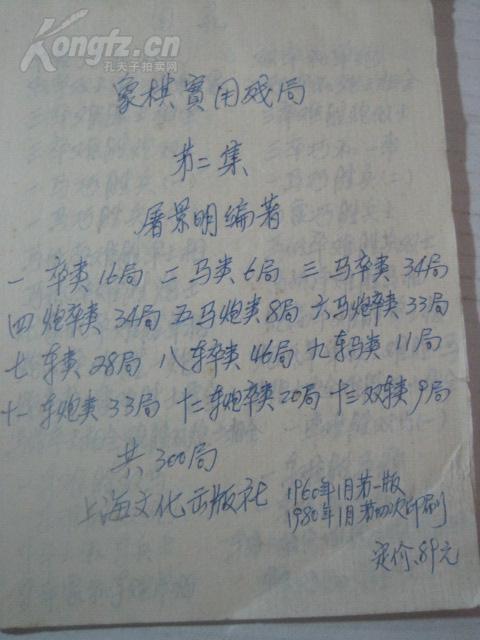 Kongfz.com
孔夫子拍卖网
象棋實用残局
第二集
屠景明编著
一 卒类16局 二 马类6局 三 马卒类 34局
四 炮卒类 34局 五马炮类8局 六马炮卒类33局
七 车类28局 八车卒类46局 九车马类11局
十一车炮类33局 十二车炮卒类20局 十三双车类9局
共 300局
上海文化出版社 1960年1月第一版
1980年1月第四次印刷
定价.89元